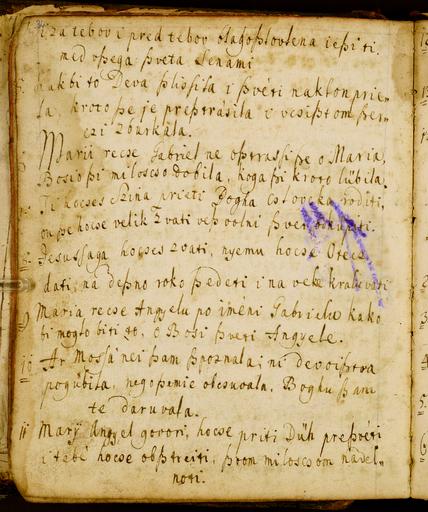 i za tebov i pred tebov blagoslovlena iesi ti:
med vsega sveta senami
kak bi to Deva slissila i sveti naklon prie-
la, kroto se je prestrasila i vcsistom ser-
czi zburkala.
Maria recse Gabriel ne ostrassi se o Maria,
Bosio si miloscso dobila, koga si kroto lübila.
Ti hocses szina prieti Bogha csloveka roditi,
on se hocse velik zvati ves volni svet odkupiti.
8 Jesussaga hocses zvati, nyemu hocse Otecz
dati, na desno roko sedeti i na veke kralüvati
9 Maria recse Angyelu po iméni Gabrielu kako
bi moglo biti to, o Bosi sveti Angyele.
10 Ar Mossa nei sam spoznala, ni devoistva
pogübila, nego semie obcsuvala, Boghu sam
te daruvala.
11 Marij Angyel govori, hocse priti Düh presvéti
i tebé hocse obstreiti, svom miloscsom nadel-
noti.